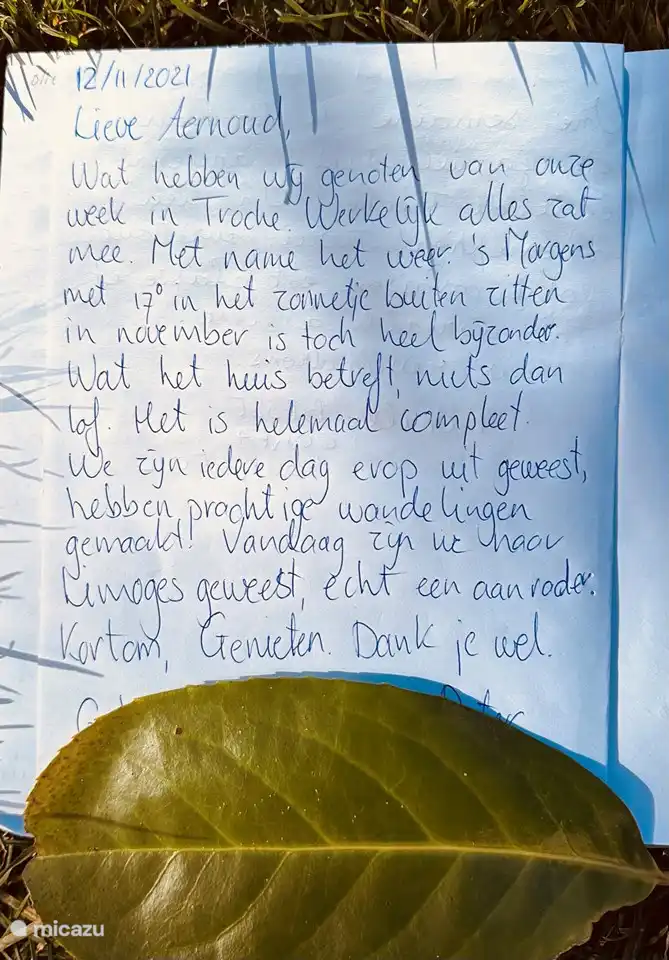 12/11/2021
Lieve Aernoud,
Wat hebben wij genoten van onze
week in Troche. Werkelijk alles zat
mee. Met name het weer. 's Morgens
met 17° in het zonnetje buiten zitten
in november is toch heel bijzonder.
Wat het huis betreft, niets dan
lof. Het is helemaal compleet.
We zijn iedere dag erop uit geweest,
hebben prachtige wandelingen
gemaakt! Vandaag zijn we naar
Limoges geweest, echt een aanrader.
Kortom, Genieten. Dank je wel.
micazu